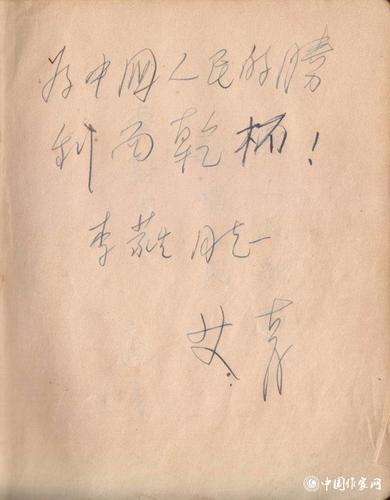 为中國人民的勝
利而乾杯!
李蕤同志
艾青
中国作家网